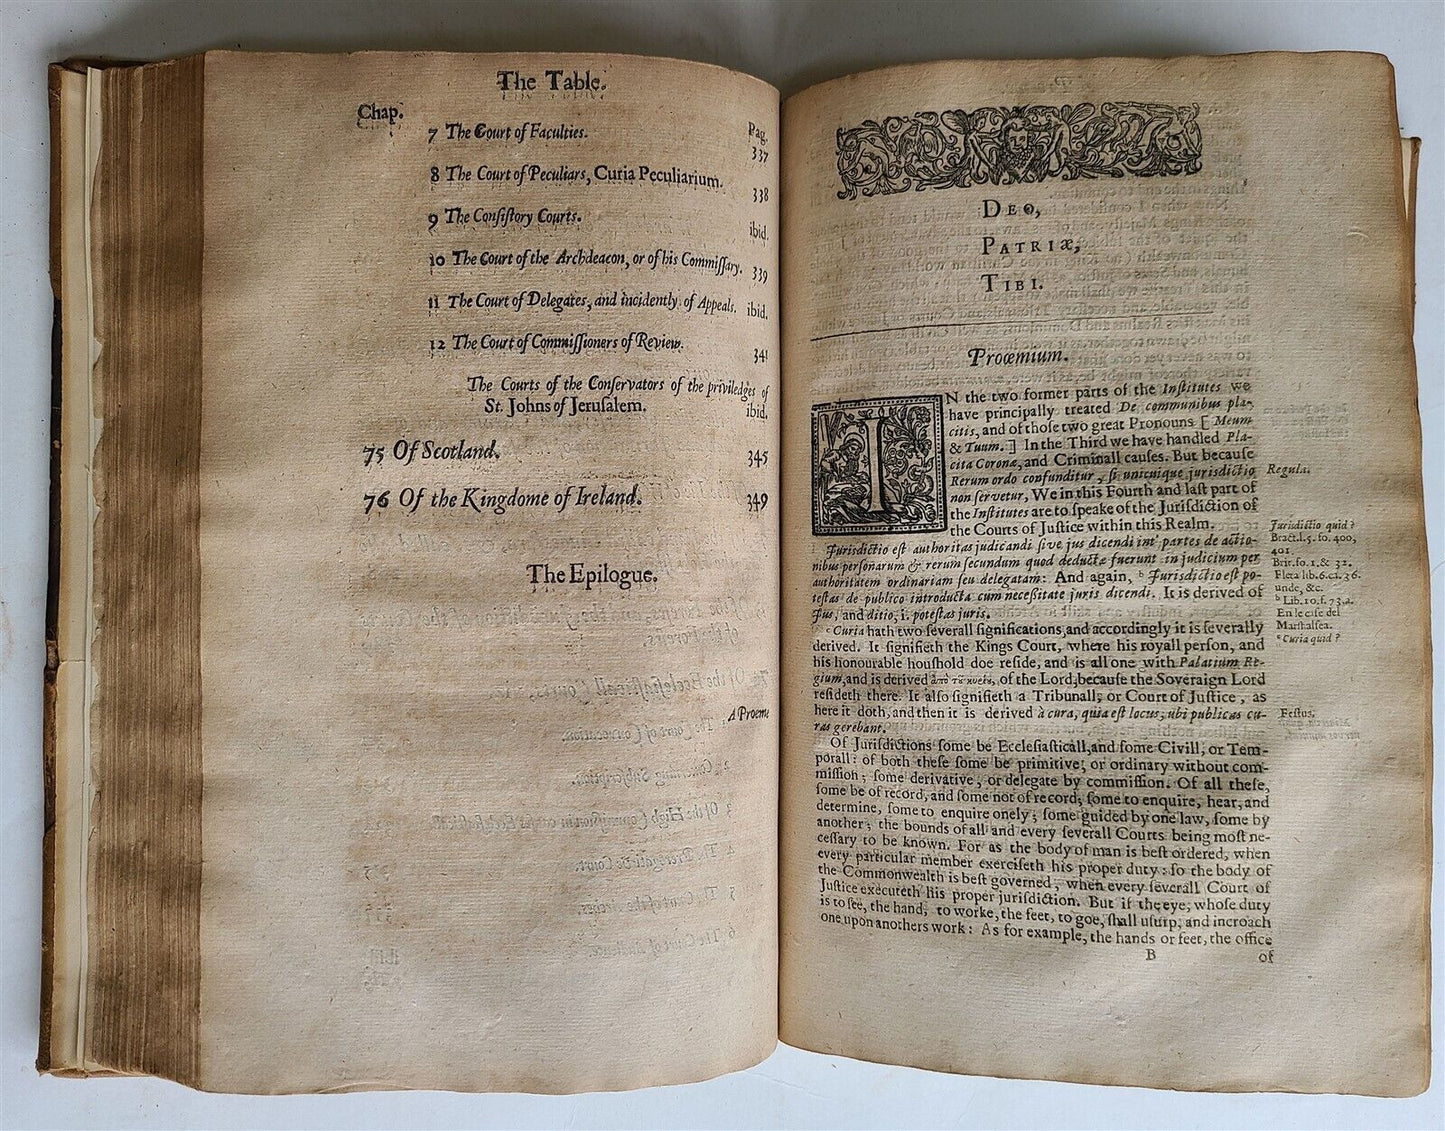 The Table.
Chap.
Pag.
7 The Court of Faculties. 337
8 The Court of Peculiars, Curia Peculiarium. 338
9 The Conſiſtory Courts. ibid.
10 The Court of the Archdeacon, or of his Commiſſary. 339
11 The Court of Delegates, and incidently of Appeals. ibid.
12 The Court of Commiſſioners of Review. 341
The Courts of the Conſervators of the priviledges of
St. Johns of Jeruſalem. ibid.
75 Of Scotland. 345
76 Of the Kingdome of Ireland. 349
The Epilogue.
A Proeme
DEO,
PATRIÆ,
TIBI.
Proœmium.
IN the two former parts of the Inſtitutes we
have principally treated De communibus pla-
citis, and of thoſe two great Pronouns [ Meum
& Tuum. ] In the Third we have handled Pla-
cita Coronæ, and Criminall cauſes. But becauſe
Rerum ordo confunditur, ſi unicuique jurisdictio
non ſervetur, We in this Fourth and laſt part of
the Inſtitutes are to ſpeake of the Jurisdiction of
the Courts of Juſtice within this Realm.
Jurisdictio eſt authoritas judicandi ſive jus dicendi int' partes de actio-
nibus perſonarum & rerum ſecundum quod deductæ fuerunt in judicium per
authoritatem ordinariam ſeu delegatam: And again, ᵇ Jurisdictio eſt po-
teſtas de publico introducta cum neceſsitate juris dicendi. It is derived of
Jus, and ditio, i. poteſtas juris.
ᶜ Curia hath two ſeverall ſignifications, and accordingly it is ſeverally
derived. It ſignifieth the Kings Court, where his royall perſon, and
his honourable houſhold doe reſide, and is all one with Palatium Re-
gium, and is derived of the Lord, becauſe the Soveraign Lord
reſideth there. It alſo ſignifieth a Tribunall, or Court of Juſtice, as
here it doth, and then it is derived à cura, quia eſt locus, ubi publicas cu-
ras gerebant.
Of Jurisdictions ſome be Eccleſiaſticall, and ſome Civill, or Tem-
porall: of both theſe ſome be primitive, or ordinary without com-
miſſion; ſome derivative, or delegate by commiſſion. Of all theſe,
ſome be of record, and ſome not of record; ſome to enquire, hear, and
determine, ſome to enquire onely; ſome guided by one law, ſome by
another; the bounds of all and every ſeverall Courts being moſt ne-
ceſſary to be known. For as the body of man is beſt ordered, when
every particular member exerciſeth his proper duty: ſo the body of
the Commonwealth is beſt governed, when every ſeverall Court of
Juſtice executeth his proper jurisdiction. But if the eye, whoſe duty
is to ſee, the hand, to worke, the feet, to goe, ſhall uſurp, and incroach
one upon anothers work: As for example, the hands or feet, the office
B of
Regula.
Jurisdictio quid?
Bract.l.5.fo.400,
401.
Brit.fo.1.& 32.
Fleta lib.6.c1.36.
unde, &c.
ᵇ Lib.10.f.73.a.
En le caſe del
Marſhalſea.
ᶜ Curia quid?
Feſtus.